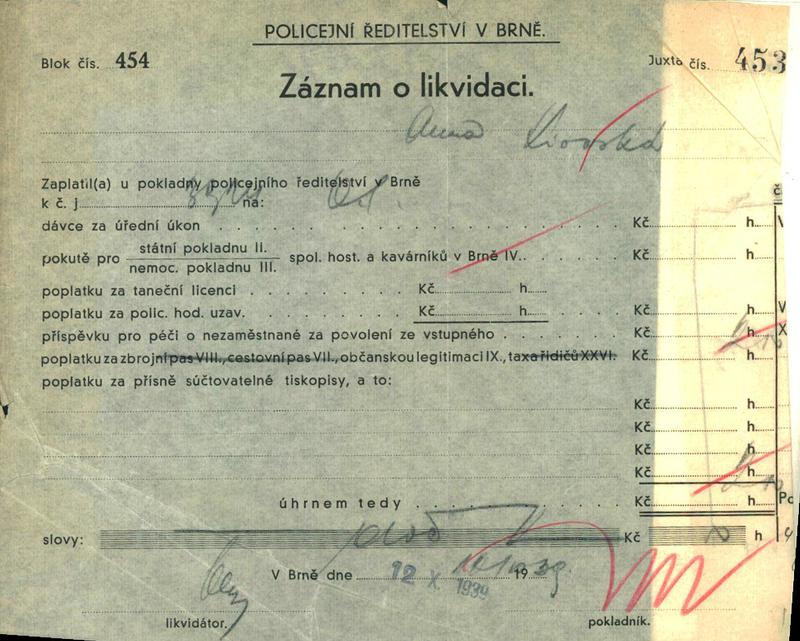 POLICEJNÍ ŘEDITELSTVÍ V BRNĚ.
Blok čís. 454
Juxta čís. 453
Záznam o likvidaci.
Anna
Zaplatil(a) u pokladny policejního ředitelství v Brně
k č. j. na:
dávce za úřední úkon Kč h.
pokutě pro státní pokladnu II. nemoc. pokladnu III. spol. host. a kavárníků v Brně IV. Kč h.
poplatku za taneční licenci Kč h.
poplatku za polic. hod. uzav. Kč h. Kč h. V
příspěvku pro péči o nezaměstnané za povolení ze vstupného Kč h. X
poplatku za zbrojní pas VIII., cestovní pas VII., občanskou legitimaci IX., taxa řidičů XXVI. Kč h.
poplatku za přísně súčtovatelné tiskopisy, a to:
Kč h.
Kč h.
Kč h.
Kč h.
úhrnem tedy Kč h. Po
slovy: Kč h
V Brně dne 12 X. 1939 19 39.
likvidátor.
pokladník.